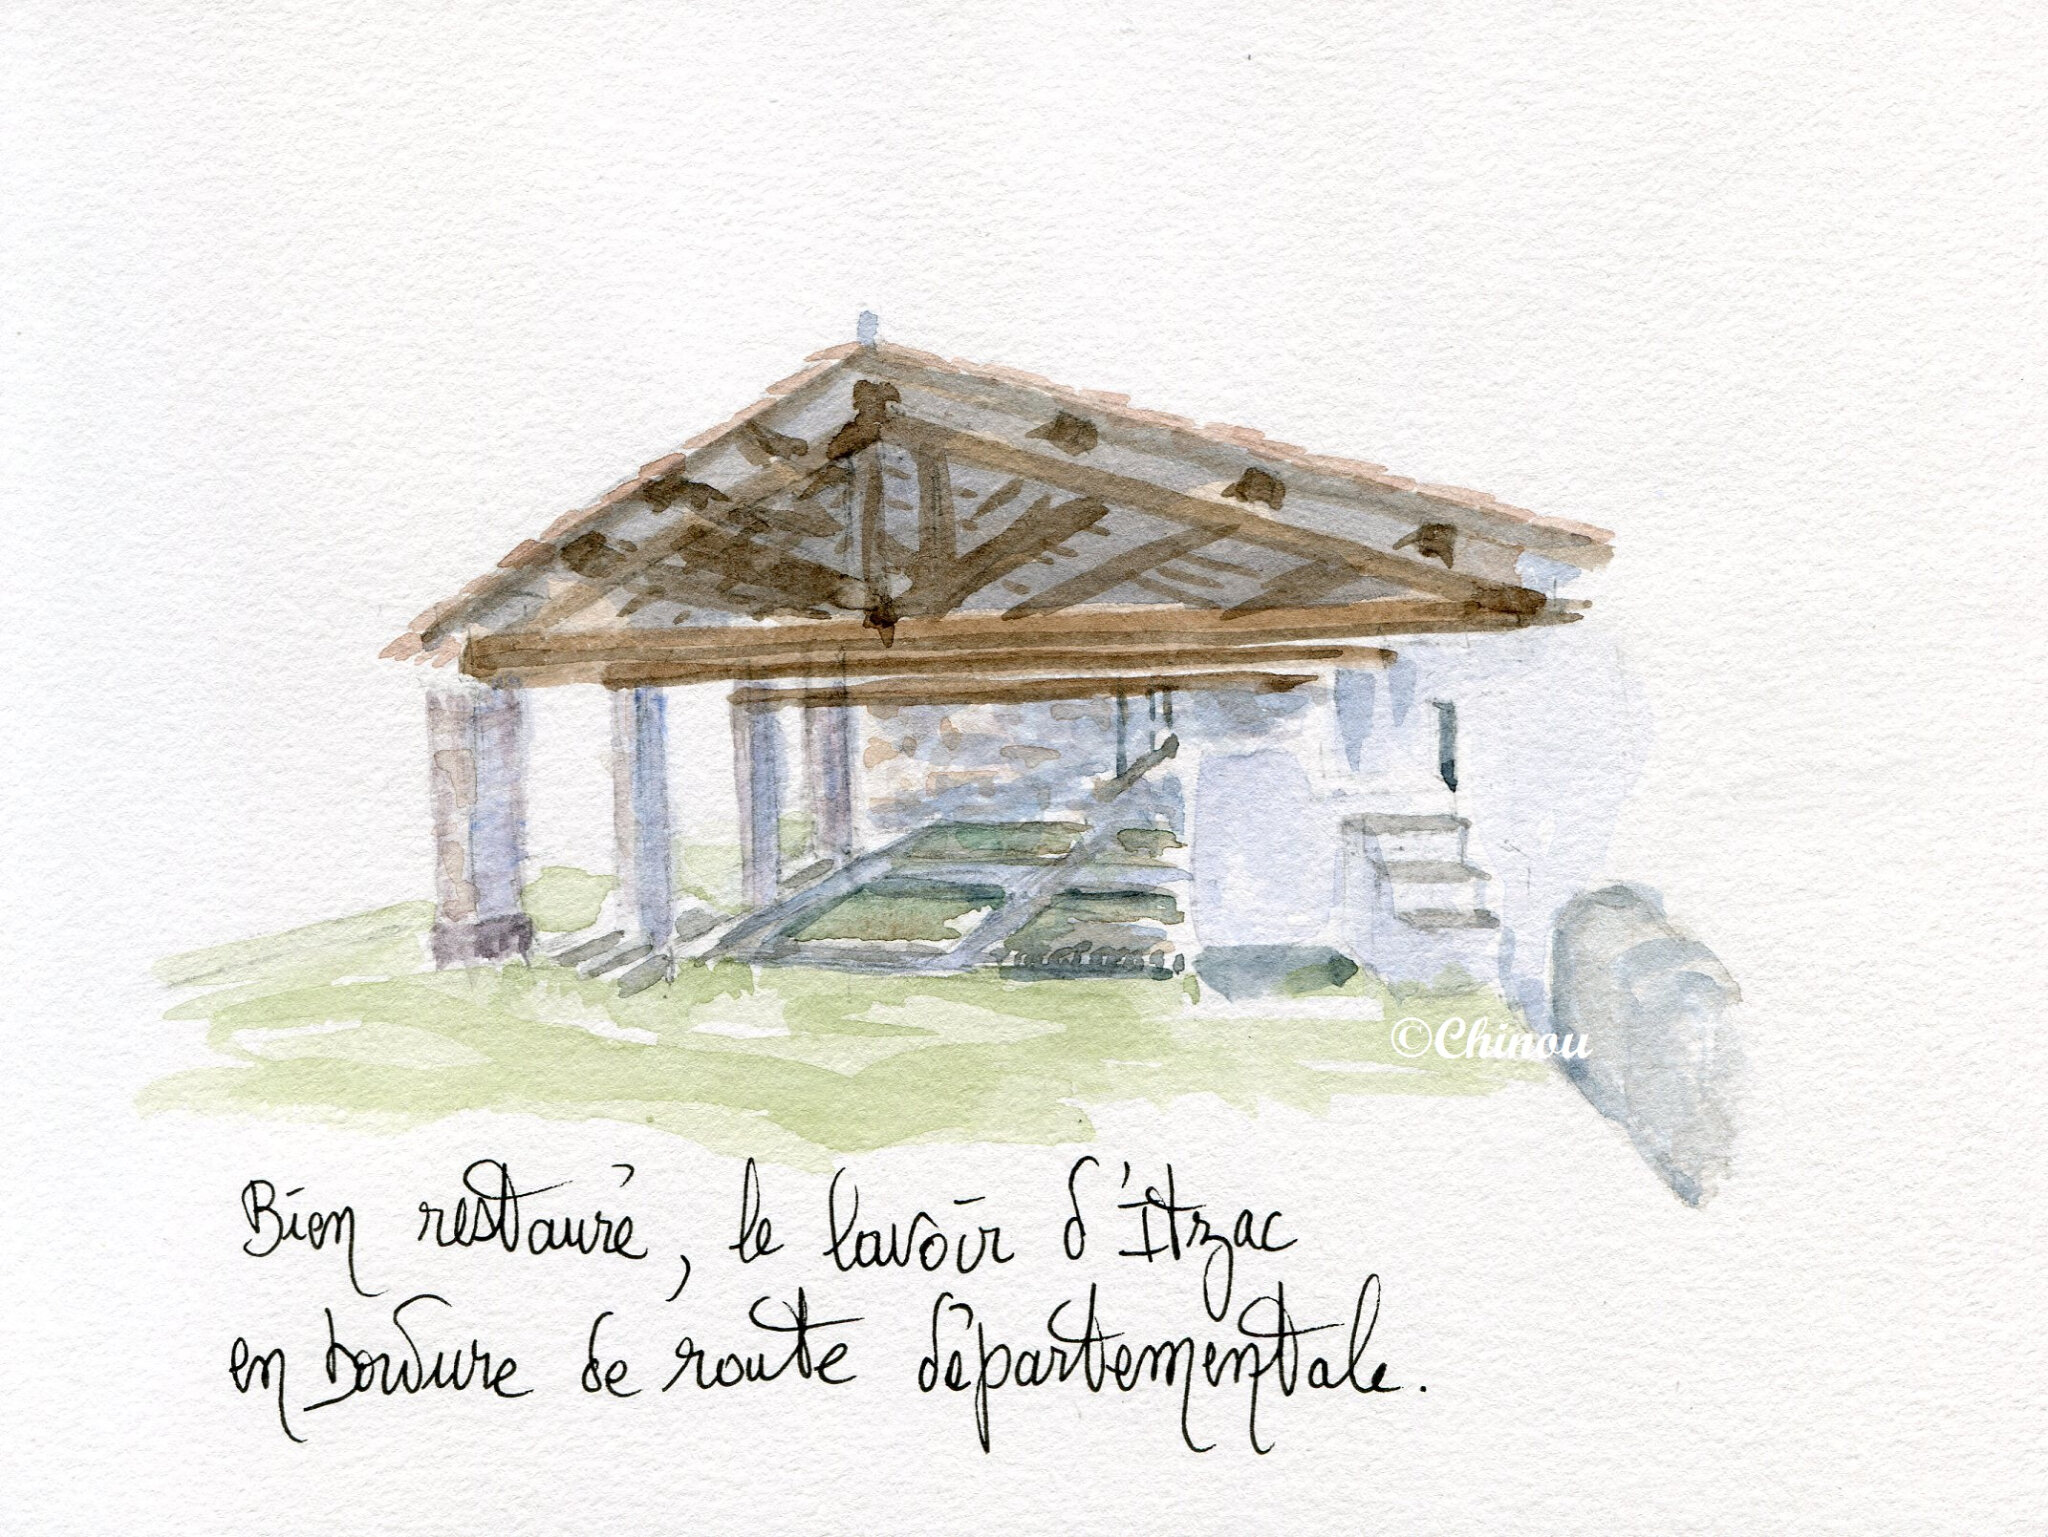 ©Chinou
Bien restauré, le lavoir d'Itzac
en bordure de route départementale.